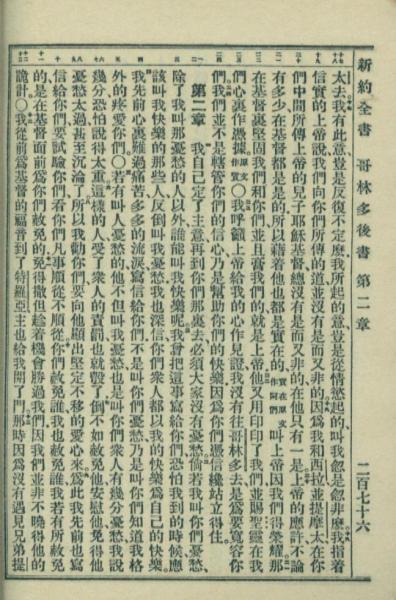 新約全書 哥林多後書 第二章 二百七十六
太去、我有此意豈是反復不定麽、我所起的意豈是從情慾起的、叫我忽是忽非麽、我指着
信實的上帝說、我們向你們所傳的道、並沒有是而又非的、因爲我和西拉並提摩太、在你
們中間所傳上帝的兒子耶穌基督、總沒有是而又非的、在他只有一是、上帝的應許、不論
有多少、在基督都是是的、所以藉着他也都是實在的、實在原文作阿們 叫上帝因我們得榮耀、那
在基督裏堅固我們和你們、並且膏我們的就是上帝、他又用印印了我們、並賜聖靈在我
們心裏作憑據、原文作質〇我呼籲上帝給我的心作見證、我沒有往哥林多去、是爲要寬容你
們、我們並不是轄管你們的信心、乃是幫助你們的快樂、因爲你們憑信纔站立得住。
第二章 我自己定了主意、再到你們那裏去、必須大家沒有憂愁、倘若我叫你們憂愁、
除了我叫那憂愁的人以外、誰能叫我快樂呢、我曾把這事寫給你們、恐怕我到的時候、應
該叫我快樂的那些人、反倒叫我憂愁、我也深信你們衆人、都以我的快樂爲自己的快樂、
我先前心裏難過痛苦、多多的流淚、寫信給你們、不是叫你們憂愁、乃是叫你們知道我格
外的疼愛你們〇若有叫人憂愁的、他不但叫我憂愁、也是叫你們衆人有幾分憂愁、我說
幾分、恐怕說得太重、這樣的人、受了衆人的責罰、也就彀了、倒不如赦免他、安慰他、免得他
憂愁太過、甚至沉淪了、所以我勸你們、要向他顯出堅定不移的愛心來、爲此我先前也寫
信給你們、要試驗你們、看你們凡事順從不順從、你們赦免誰、我也赦免誰、我若有所赦免
的、是在基督面前爲你們赦免的、免得撒但趁着機會勝過我們、因我們並非不曉得他的
詭計〇我從前爲基督的福音到了特羅亞、主也給我開了門、那時因爲沒有遇見兄弟提